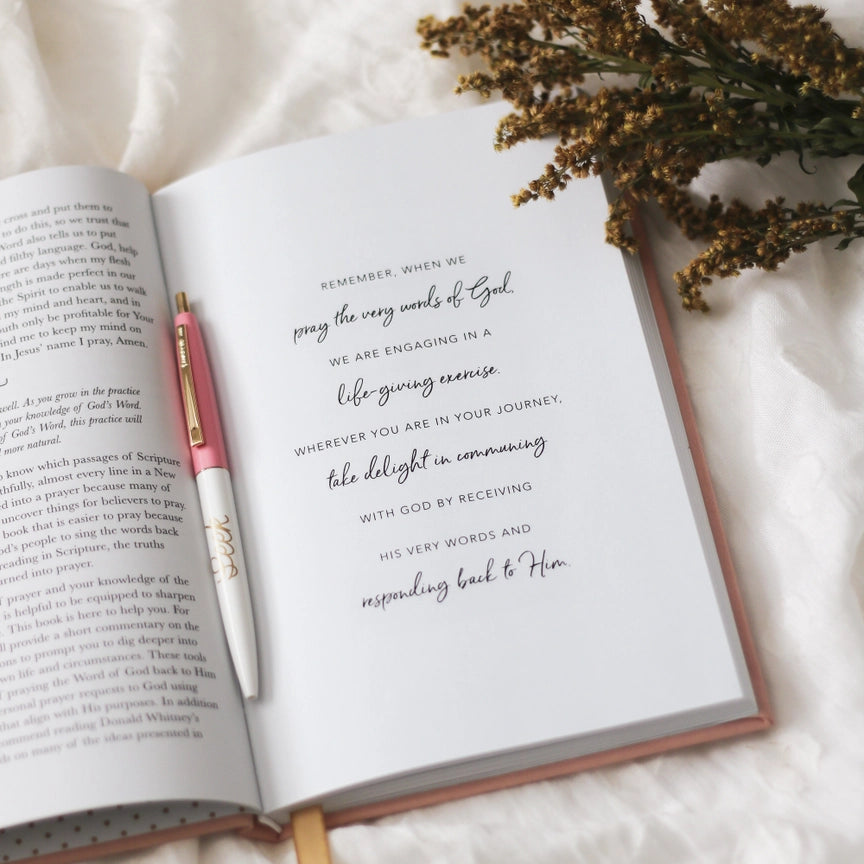 cross and put them to
to do this, so we trust that
Word also tells us to put
filthy language. God, help
re are days when my flesh
ngth is made perfect in our
the Spirit to enable us to walk
my mind and heart, and in
outh only be profitable for Your
ind me to keep my mind on
In Jesus' name I pray, Amen.
well. As you grow in the practice
your knowledge of God's Word.
of God's Word, this practice will
more natural.
o know which passages of Scripture
thfully, almost every line in a New
ed into a prayer because many of
uncover things for believers to pray.
book that is easier to pray because
od's people to sing the words back
reading in Scripture, the truths
urned into prayer.
f prayer and your knowledge of the
is helpful to be equipped to sharpen
. This book is here to help you. For
ll provide a short commentary on the
ons to prompt you to dig deeper into
wn life and circumstances. These tools
f praying the Word of God back to Him
ersonal prayer requests to God using
that align with His purposes. In addition
ommend reading Donald Whitney's
ds on many of the ideas presented in
Seek
REMEMBER, WHEN WE
pray the very words of God,
WE ARE ENGAGING IN A
life-giving exercise.
WHEREVER YOU ARE IN YOUR JOURNEY,
take delight in communing
WITH GOD BY RECEIVING
HIS VERY WORDS AND
responding back to Him.